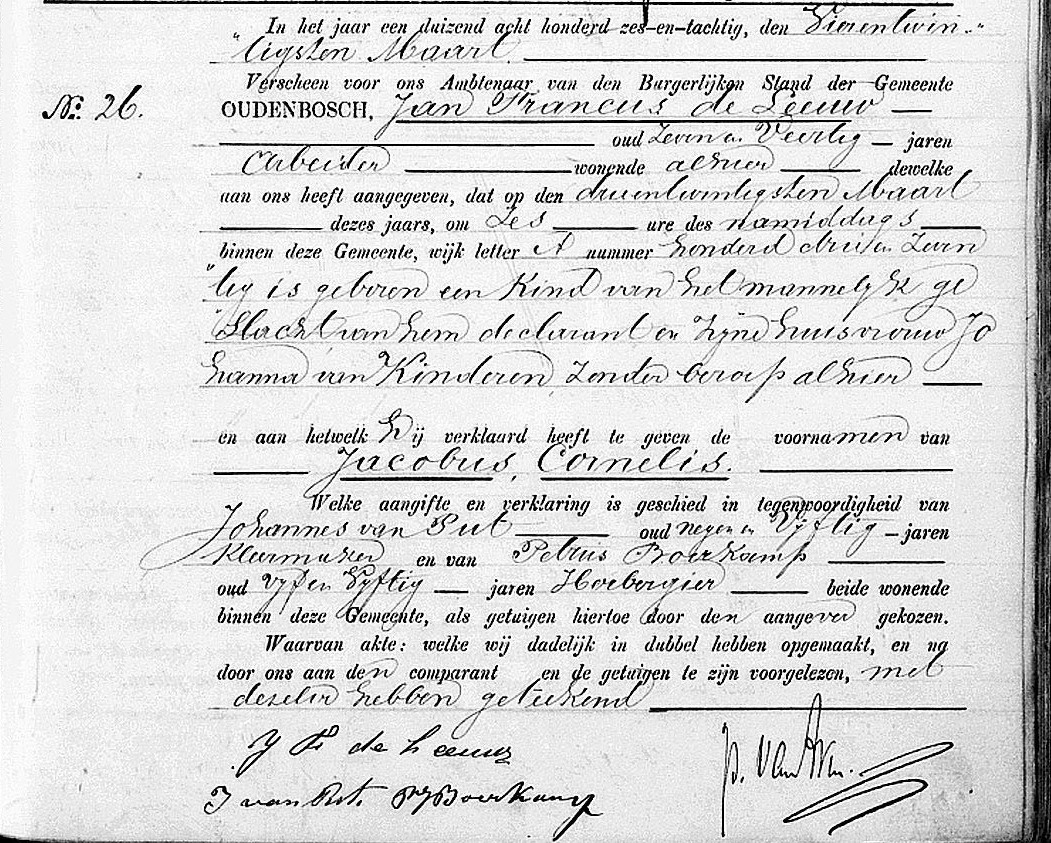 In het jaar een duizend acht honderd zes-en-tachtig, den Vierentwin„
„tigsten Maart
Verscheen voor ons Ambtenaar van den Burgerlijken Stand der Gemeente
No. 26.
OUDENBOSCH, Jan Francus de Leeuw
oud Zeven en Veertig jaren
Arbeider wonende alhier dewelke
aan ons heeft aangegeven, dat op den drieentwintigsten Maart
dezes jaars, om Zes ure des namiddags
binnen deze Gemeente, wijk letter A nummer honderd drie en Zeven
„tig is geboren een Kind van het mannelyk ge
„Slacht van hem declarant en Zijne huisvrouw Jo
hanna van Kinderen Zonder beroep alhier
en aan hetwelk hij verklaard heeft te geven de voornamen van
Jacobus, Cornelis.
Welke aangifte en verklaring is geschied in tegenwoordigheid van
Johannes van Put oud negen en Vyftig jaren
Kleermaker en van Petrus Boerkamp
oud Vyf en Vyftig jaren Herbergier beide wonende
binnen deze Gemeente, als getuigen hiertoe door den aangever gekozen.
Waarvan akte: welke wij dadelijk in dubbel hebben opgemaakt, en na
door ons aan den comparant en de getuigen te zijn voorgelezen, met
dezelve hebben geteekend
J F de Leeuw
P. van
J van Put P Boerkamp